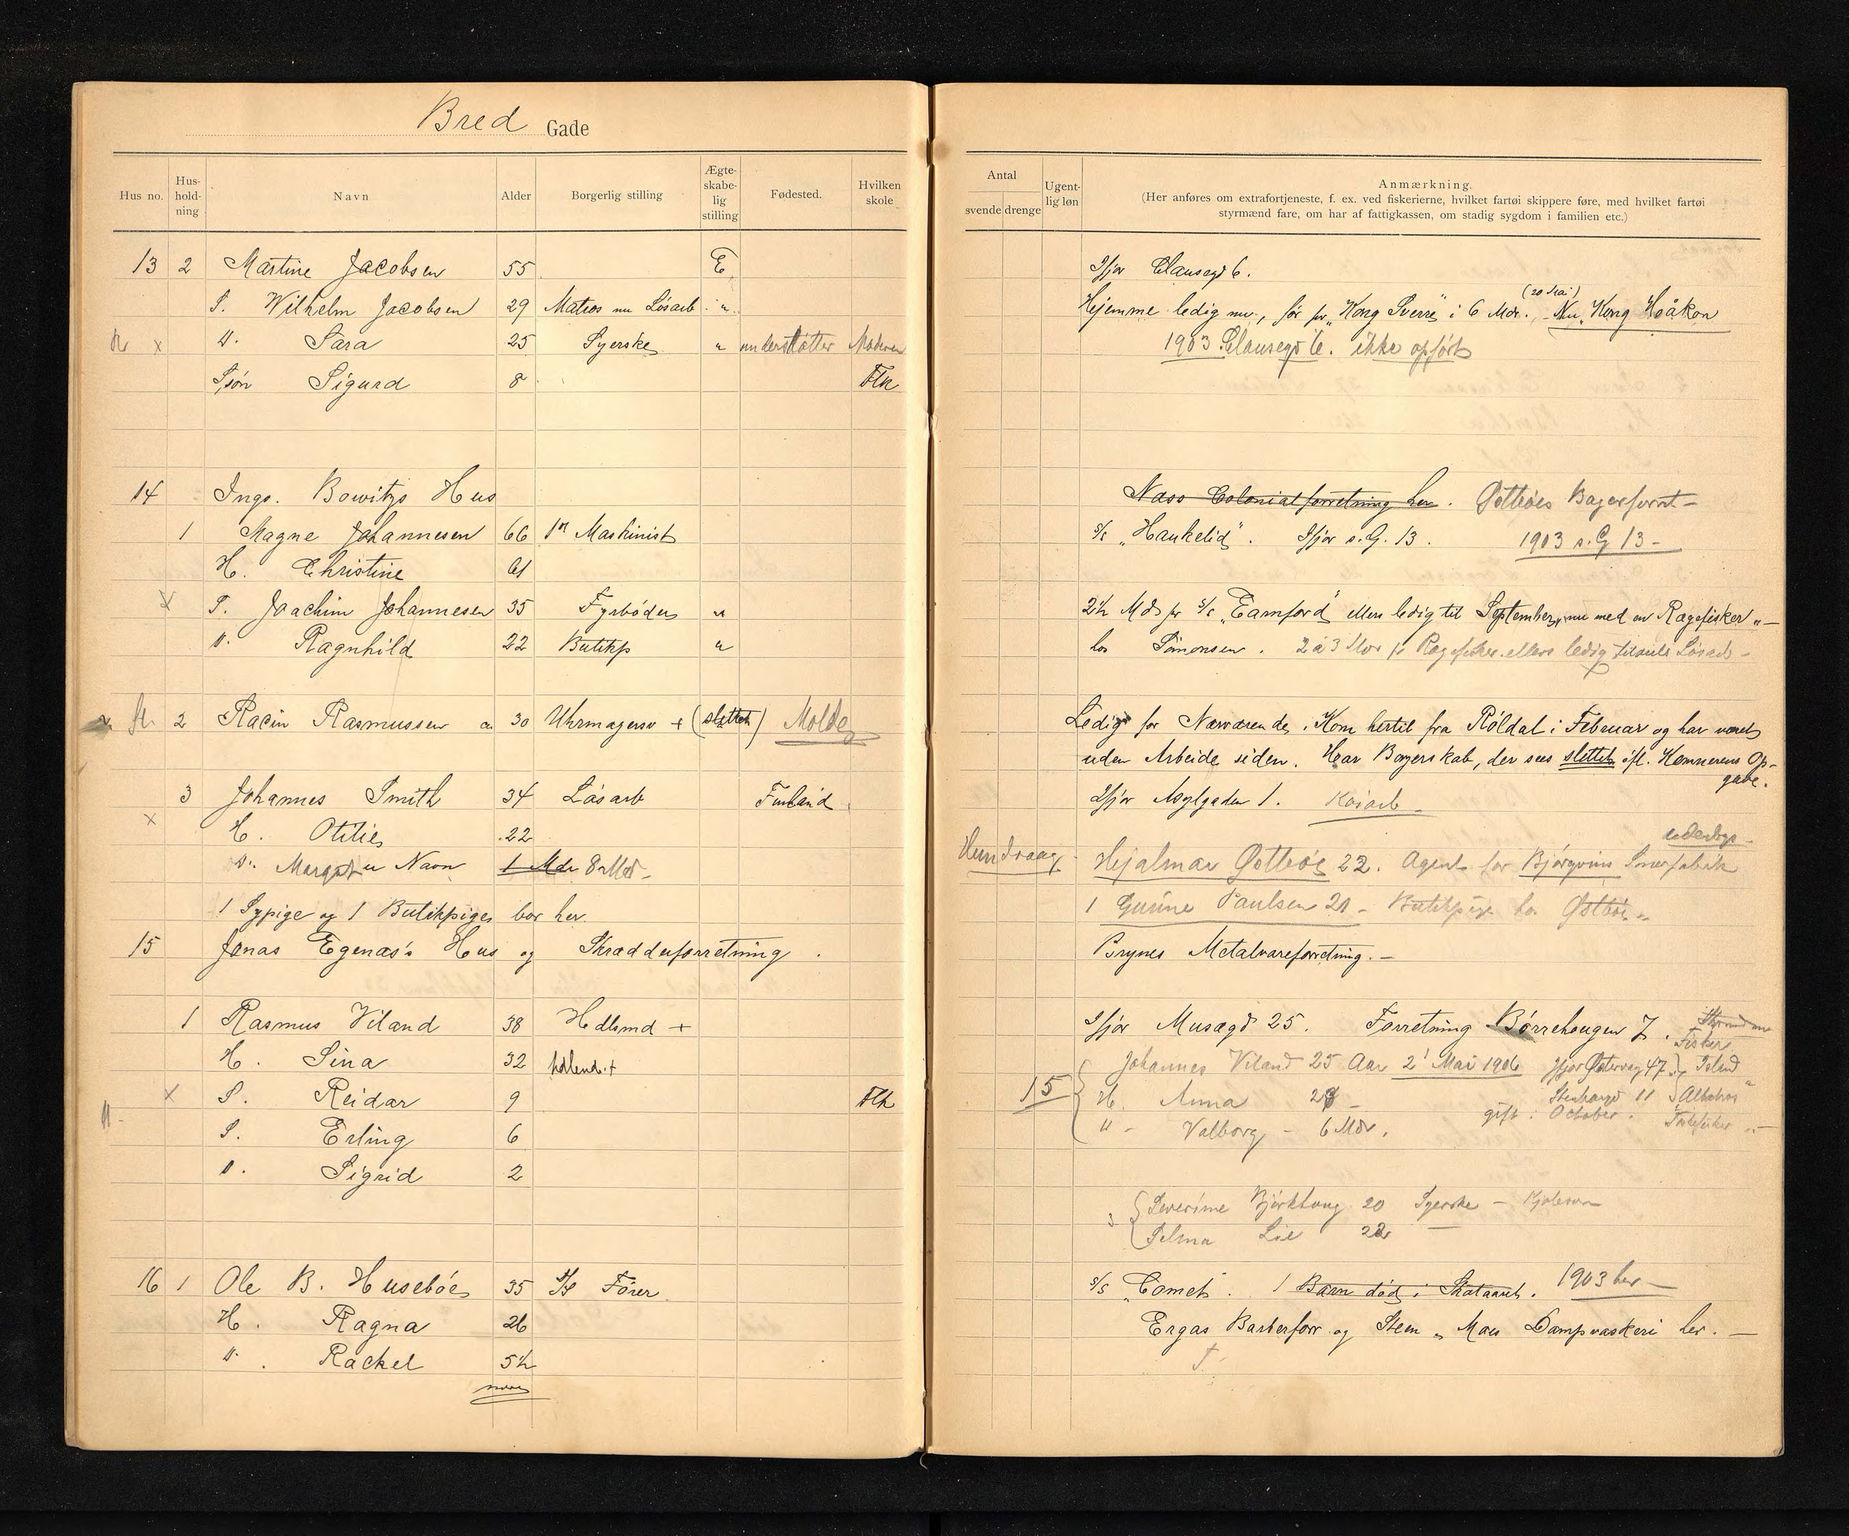 Bred Gade
Hus no. Hus-holdning Navn Alder Borgerlig stilling Ægteskabelig stilling Fødested. Hvilken skole
13 2 Martine Jacobsen 55 E
S. Wilhelm Jacobsen 29 Matros nu Løsarb. "
x D. Sara 25 Syerske " understøtter Moderen
Sjøn Sigurd 8 Flk
14 Ingr. Bowitz's Hus
1 Magne Johannesen 66 1st Maskinist
H. Christine 61
x S. Joachim Johannesen 35 Fyrbøder "
D. Ragnhild 22 Butikp "
2 Racin Rasmussen 30 Uhrmagersv + (slettet) Molde
3 Johannes Smith 34 Løsarb Finland
x H. Otilie 22
D. Margot u Navn 1 Mdr 8 Mdr
1 Sypige og 1 Butikkpige bor her.
15 Jonas Egenæs's Hus og Skrædderforretning.
1 Rasmus Viland 38 Hdlsmd +
H. Sina 32
x S. Reidar 9 Flk
S. Erling 6
D. Sigrid 2
16 1 Ole B. Husebøe 35 S/S Fører
H. Ragna 26
D. Rackel 5½
Antal svende drenge Ugentlig løn Anmærkning.
(Her anføres om extrafortjeneste, f. ex. ved fiskerierne, hvilket fartøi skippere føre, med hvilket fartøi
styrmænd fare, om har af fattigkassen, om stadig sygdom i familien etc.)
Ifjor Clausegd 6.
(20 Mai)
Hjemme ledig nu, før pr „Kong Sverre" i 6 Mdr. Nu „Kong Håkon
1903 Clausegd 6. ikke opført
Næss Colonialforretning her. Østbøes Bagerforret
s/s „Haukelid". Ifjor s.G. 13. 1903 s.G 13
2½ Mdr pr s/s „Eamford" ellers ledig til September, nu med en Rægefisker
hos Simonsen. 2 à 3 Mdr pr Rægefisker ellers ledig tilsids Løsarb
Ledig for Nærværende. Kom hertil fra Røldal i Februar og har været
uden Arbeide siden. Har Borgerskab, der sees slettet ifl. Kemnerens Op-
gave.
Ifjor Asylgaden 1. Koiarb
Hundvaag Hjalmar Østbøe 22. Agent for Bjørgvins Smørfabrik
1 Gurine Paulsen 21 - Butikpige hos Østbøe
Brynes Metalvareforretning.
Ifjor Musægd 25. Forretning Børrehaugen 7.
Fisker
Johannes Viland 25 Aar 21 Mai 1906 Ifjor Østervag 47
15 H. Anna 28
gift i October.
" Valborg - 6 Mdr.
3 Severine Bjørkhaug 20 Syerske
Selma Lie 22
s/s „Comet". 1 Barn død i Skataaret. 1903 her
Ergas Barberforr og Steen „ Maes Dampvaskeri her.